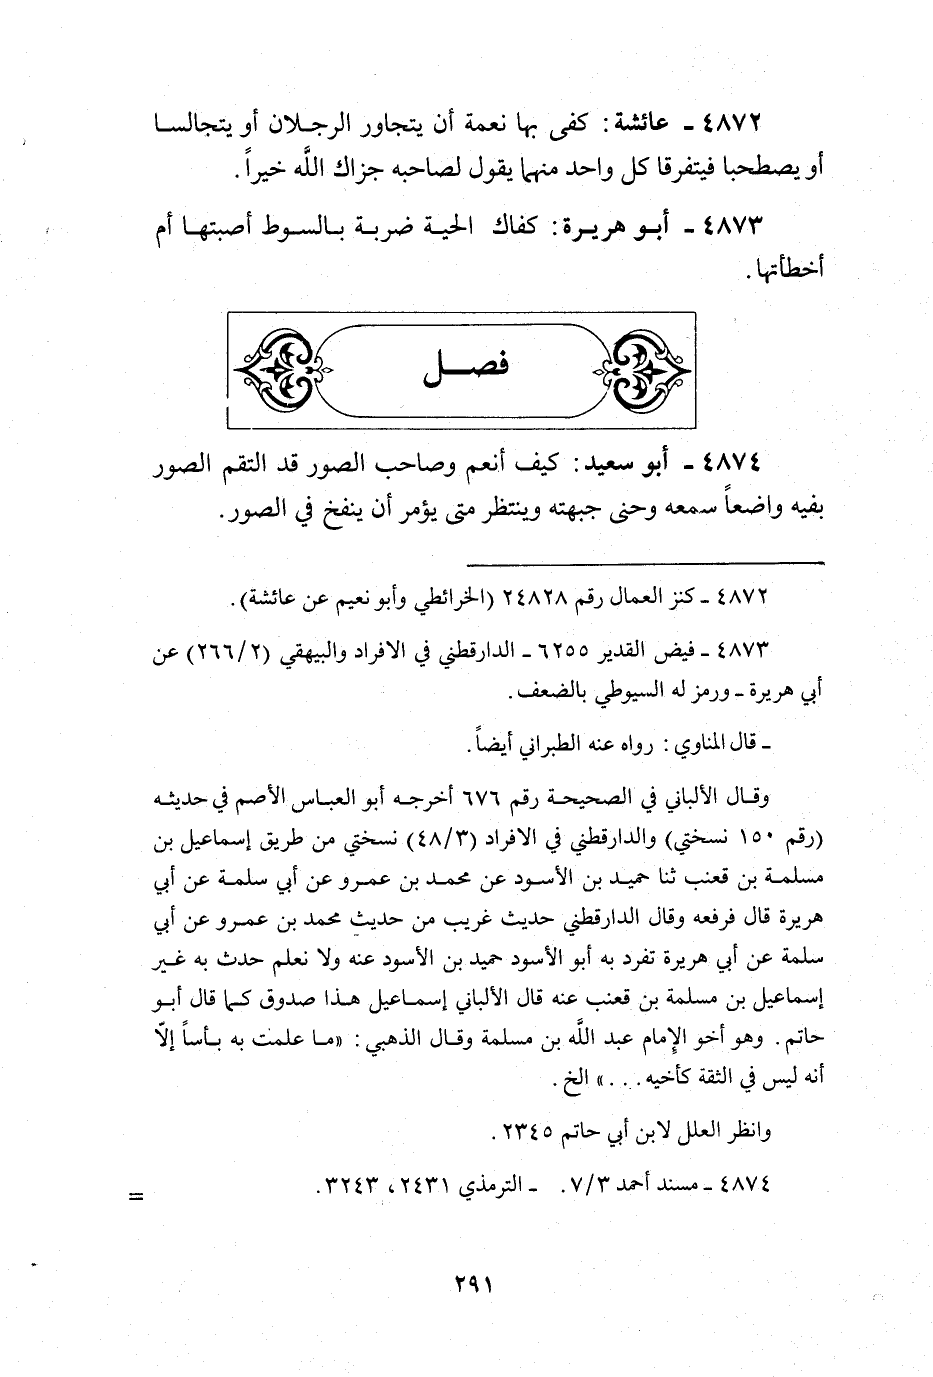 ٤٨٧٢ ـ عائشة : كفى بها نعمة أن يتجاور الرجـلان أو يتجالسـا
أو يصطحبا فيتفرقا كل واحد منهما يقول لصاحبه جزاك اللَّه خيراً .
٤٨٧٣ ـ أبـو هريـرة : كفاك الحيـة ضربـة بـالسـوط أصبتهـا أم
أخطأتها .
فصـل
٤٨٧٤ ـ أبو سعيد : كيف أنعم وصاحب الصور قد التقم الصور
بفيه واضعاً سمعه وحنى جبهته وينتظر متى يؤمر أن ينفخ في الصور .
٤٨٧٢ ـ كنز العمال رقم ٢٤٨٢٨ (الخرائطي وأبو نعيم عن عائشة) .
٤٨٧٣ ـ فيض القدير ٦٢٥٥ ـ الدارقطني في الافراد والبيهقي (٢٦٦/٢) عن
أبي هريرة ـ ورمز له السيوطي بالضعف .
ـ قال المناوي : رواه عنه الطبراني أيضاً .
وقـال الألباني في الصحيحـة رقم ٦٧٦ أخرجـه أبو العبـاس الأصم في حديثـه
(رقم ١٥٠ نسختي) والدارقطني في الافراد (٤٨/٣) نسختي من طريق إسماعيل بن
مسلمـة بن قعنب ثنا حميـد بن الأسـود عن محمـد بن عمـرو عن أبي سلمـة عن أبي
هريرة قال فرفعه وقال الدارقطني حديث غريب من حديث محمد بن عمـرو عن أبي
سلمة عن أبي هريرة تفرد به أبو الأسود حميد بن الأسود عنه ولا نعلم حدث به غـير
إسماعيل بن مسلمة بن قعنب عنه قال الألباني إسـماعيل هـذا صدوق كـما قال أبـو
حاتم . وهو أخو الإمام عبد اللَّه بن مسلمة وقـال الذهبي : «مـا علمت به بـأساً إلاّ
أنه ليس في الثقة كأخيه . . . » الخ .
وانظر العلل لابن أبي حاتم ٢٣٤٥ .
٤٨٧٤ ـ مسند أحمد ٧/٣ . ـ الترمذي ٢٤٣١ ، ٣٢٤٣ .
=
٢٩١